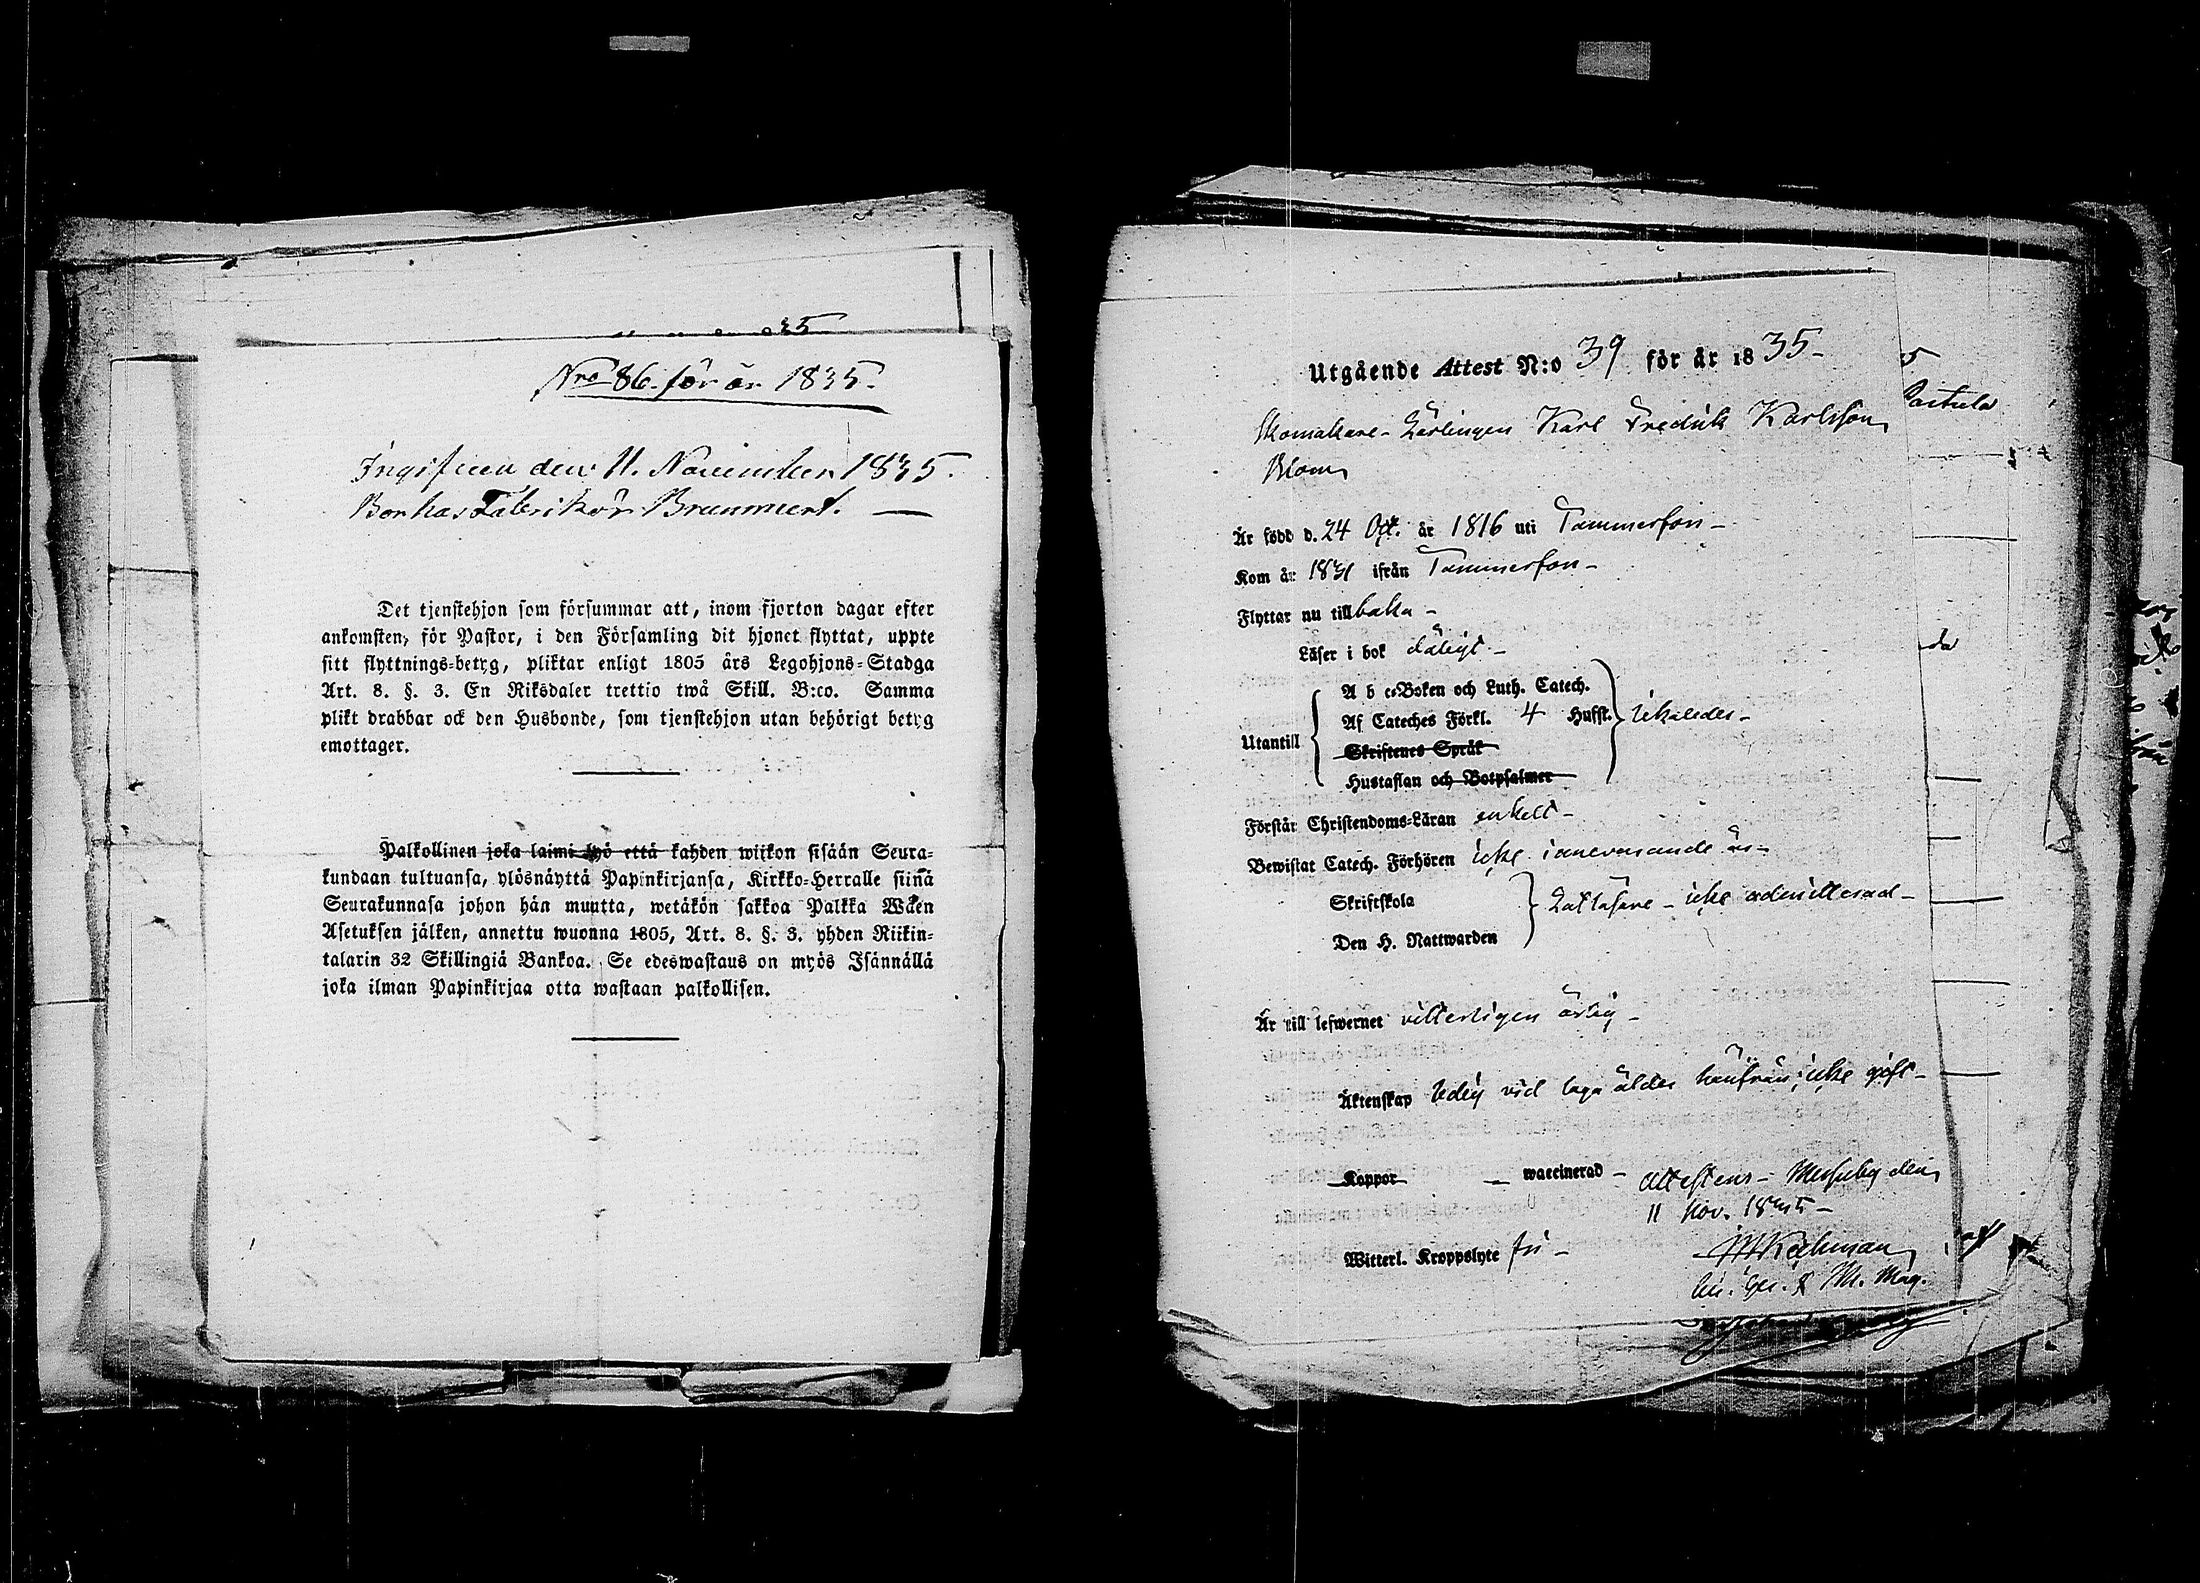 Nro 86. för år 1835.
Ingifven den 11. November 1835.
Bor hos Fabrikör Brummert.
Det tjenstehjon som försummar att, inom fjorton dagar efter
ankomsten, för Pastor, i den Församling dit hjonet flyttat, uppte
sitt flyttnings-betyg, pliktar enligt 1805 års Legohjons-Stadga
Art. 8. §. 3. En Riksdaler trettio twå Skill. B:co. Samma
plikt drabbar ock den Husbonde, som tjenstehjon utan behörigt betyg
emottager.
Palkollinen joka laimi lyö että kahden wiikon sisään Seura-
kundaan tultuansa, ylösnäyttä Papinkirjansa, Kirkko-Herralle siinä
Seurakunnasa johon hän muutta, wetäkön sakkoa Palkka Wäen
Asetuksen jälken, annettu wuonna 1805, Art. 8. §. 3. yhden Riikin-
talarin 32 Skillingiä Bankoa. Se edeswastaus on myös Isännällä
joka ilman Papinkirjaa otta wastaan palkollisen.
Utgående Attest N:o 39 för år 1835-
Skomakare-Lärlingen Karl Fredrik Karlsson
Blom
Är född d. 24 Oct. år 1816 uti Tammerfors-
Kom år 1831 ifrån Tammerfors-
Flyttar nu till baka-
Läser i bok dåligt-
Utantill
A b c-Boken och Luth. Catech.
Af Cateches Förkl. 4 Hufst. likaledes-
Skriftenes Språk
Hustaflan och Botpsalmer
Förstår Christendoms-Läran enkelt-
Bewistat Catech. Förhören icke innevarande år-
Skriftskola
Laktläsare - icke admitterad-
Den H. Nattwarden
Är till lefwernet vitterligen ärlig-
Äktenskap ledig vid laga ålder härifrån; icke gift-
Koppor - waccinerad - attesteras - Messuby den
11 Nov. 1835-
Witterl. Kroppslyte fri-